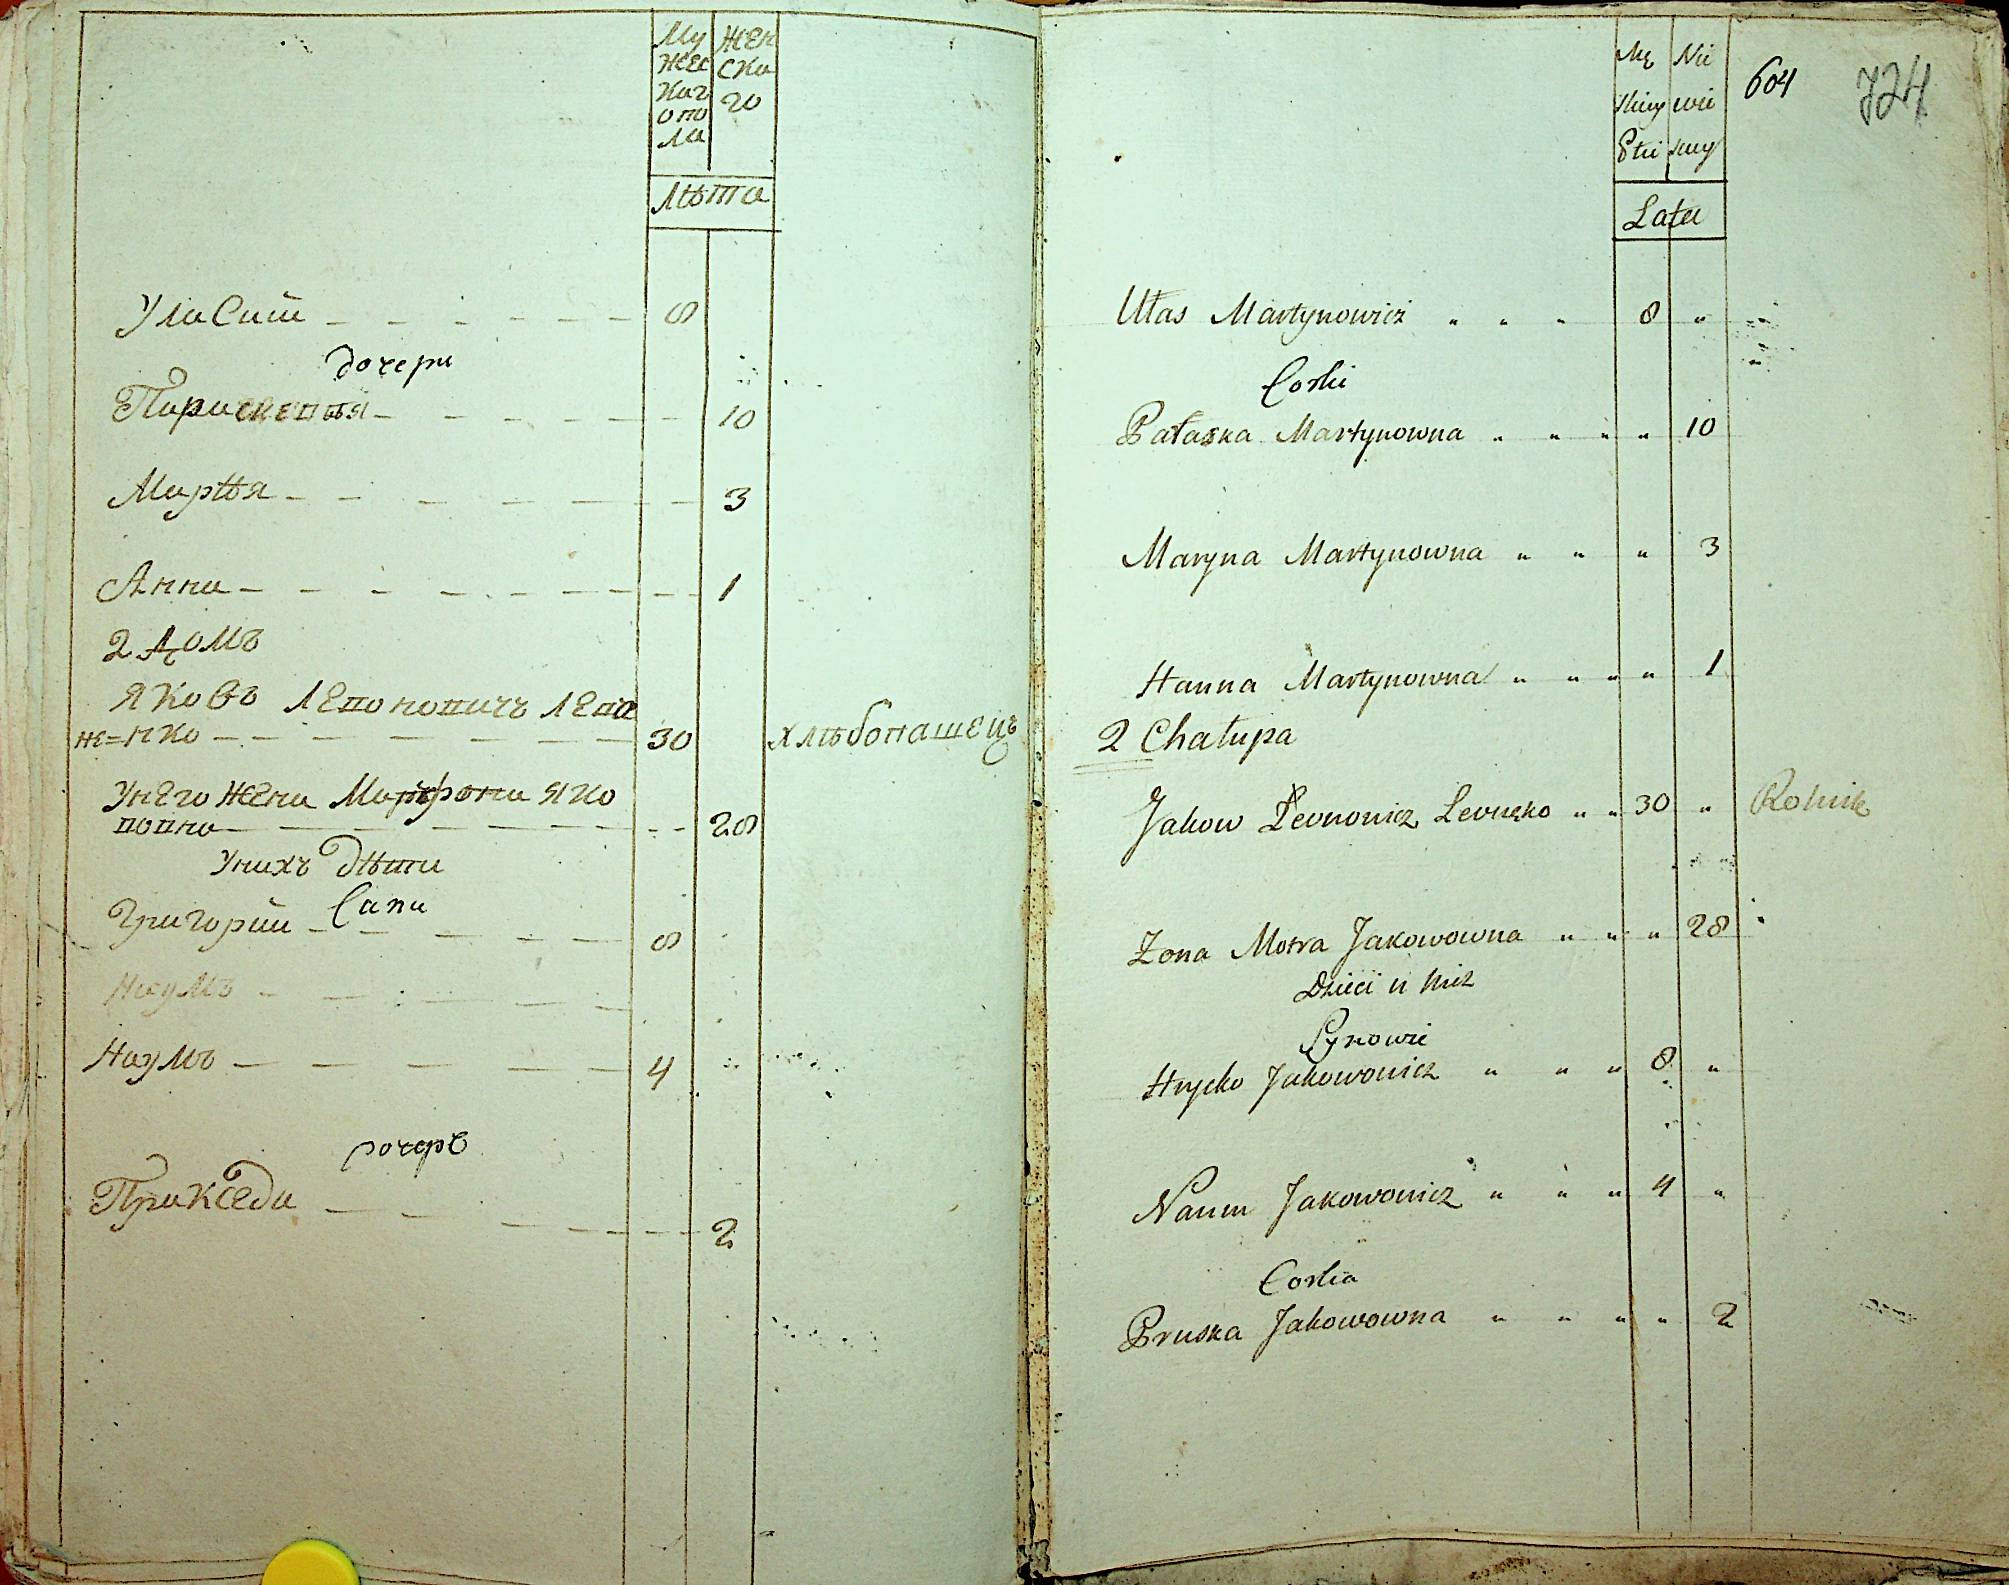 Му
жес
каг
о по
ла
жен
ска
го
лѣта
Уласий 8
дочери
Параскевья 10
Марѣя 3
Анна 1
2 домъ
Яковъ Левоновичъ Леве
не=нко 30 хлѣбопашецъ
У него жена Матрона Яко
вовна 28
У нихъ дѣти
Сыни
Григорий 8
Наумъ
Наумъ 4
дочерь
Пракседа 2
Mę
skiey
Płci
Nie
wie
sciey
Lata
604
724
Ułas Martynowicz 8 "
Corki
Pałaska Martynowna " 10
Maryna Martynowna " 3
Hanna Martynowna " 1
2 Chałupa
Jakow Levnonicz Levnęko 30 " Rolnik
Żona Motra Jakowowna " 28
Dzieci u nich
Synowie
Hrycko Jakowowicz 8 "
Naum Jakowowicz 4 "
Corka
Pruska Jakowowna " 2